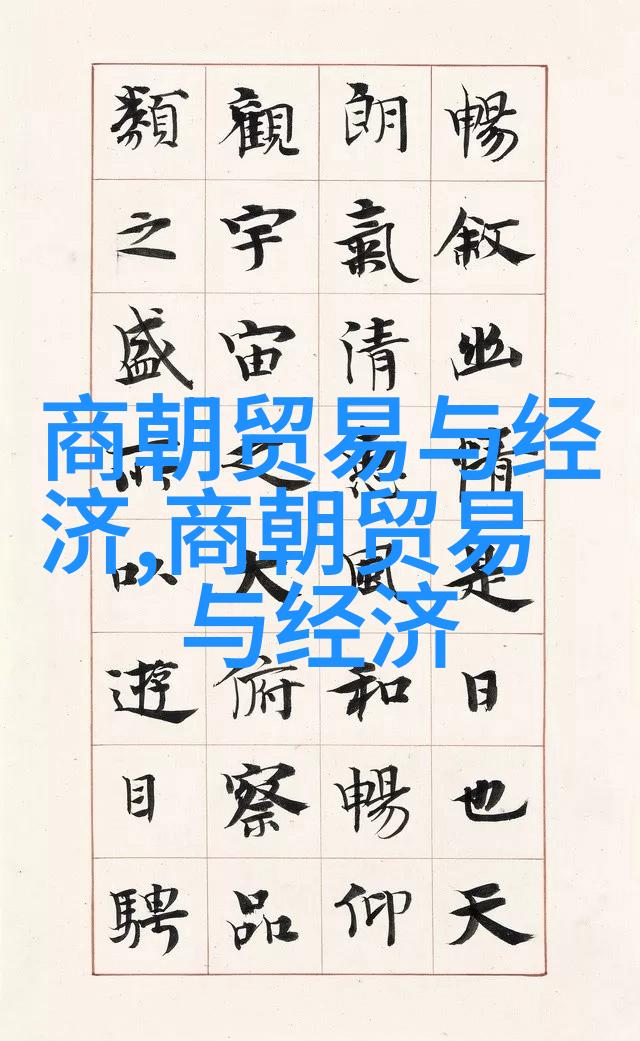 暢敘幽情是日也天
朗氣清惠風和暢仰
觀宇宙之大俯察品
類之盛所以遊目騁
商朝贸易与经
济,商朝贸易
与经济